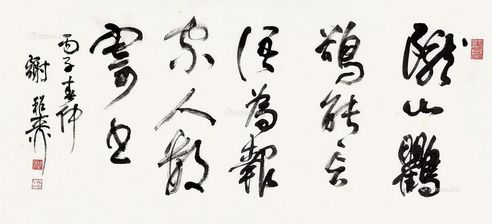 隴山鸚
鵡能言
語為報
家人數
寄書
丙子春仲
謝稚柳